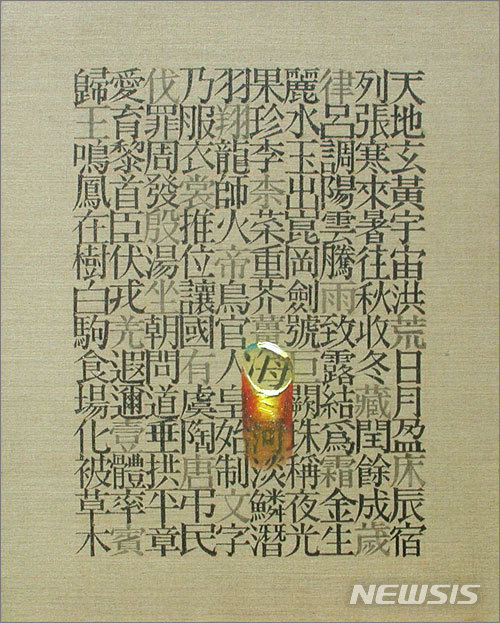 天地玄黃宇宙洪荒日月盈昃辰宿
列張寒來暑往秋收冬藏閏餘成歲
律呂調陽雲騰雨致露結爲霜金生
麗水玉出崑岡劍號巨闕珠稱夜光
果珍李柰菜重芥薑海河淡鱗潛
羽翔龍師火帝鳥官人皇始制文字
乃服衣裳推位讓國有虞陶唐弔民
伐罪周發殷湯坐朝問道垂拱平章
愛育黎首臣伏戎羌遐邇壹體率賓
歸王鳴鳳在樹白駒食場化被草木
NEWSIS